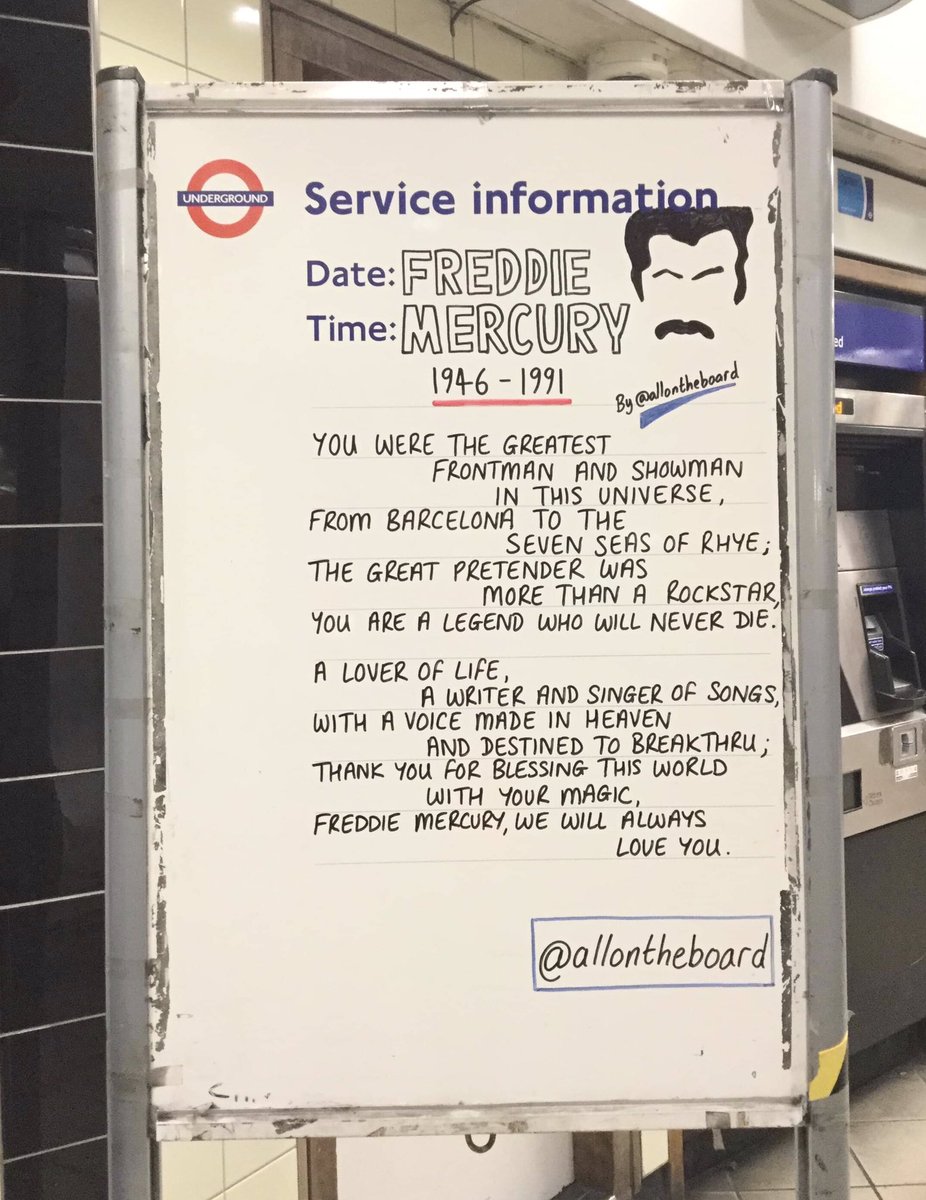 UNDERGROUND
Service information
Date: FREDDIE
Time: MERCURY
1946 - 1991
By @allontheboard
YOU WERE THE GREATEST
FRONTMAN AND SHOWMAN
IN THIS UNIVERSE,
FROM BARCELONA TO THE
SEVEN SEAS OF RHYE;
THE GREAT PRETENDER WAS
MORE THAN A ROCKSTAR,
YOU ARE A LEGEND WHO WILL NEVER DIE.
A LOVER OF LIFE,
A WRITER AND SINGER OF SONGS,
WITH A VOICE MADE IN HEAVEN
AND DESTINED TO BREAKTHRU;
THANK YOU FOR BLESSING THIS WORLD
WITH YOUR MAGIC,
FREDDIE MERCURY, WE WILL ALWAYS
LOVE YOU.
@allontheboard